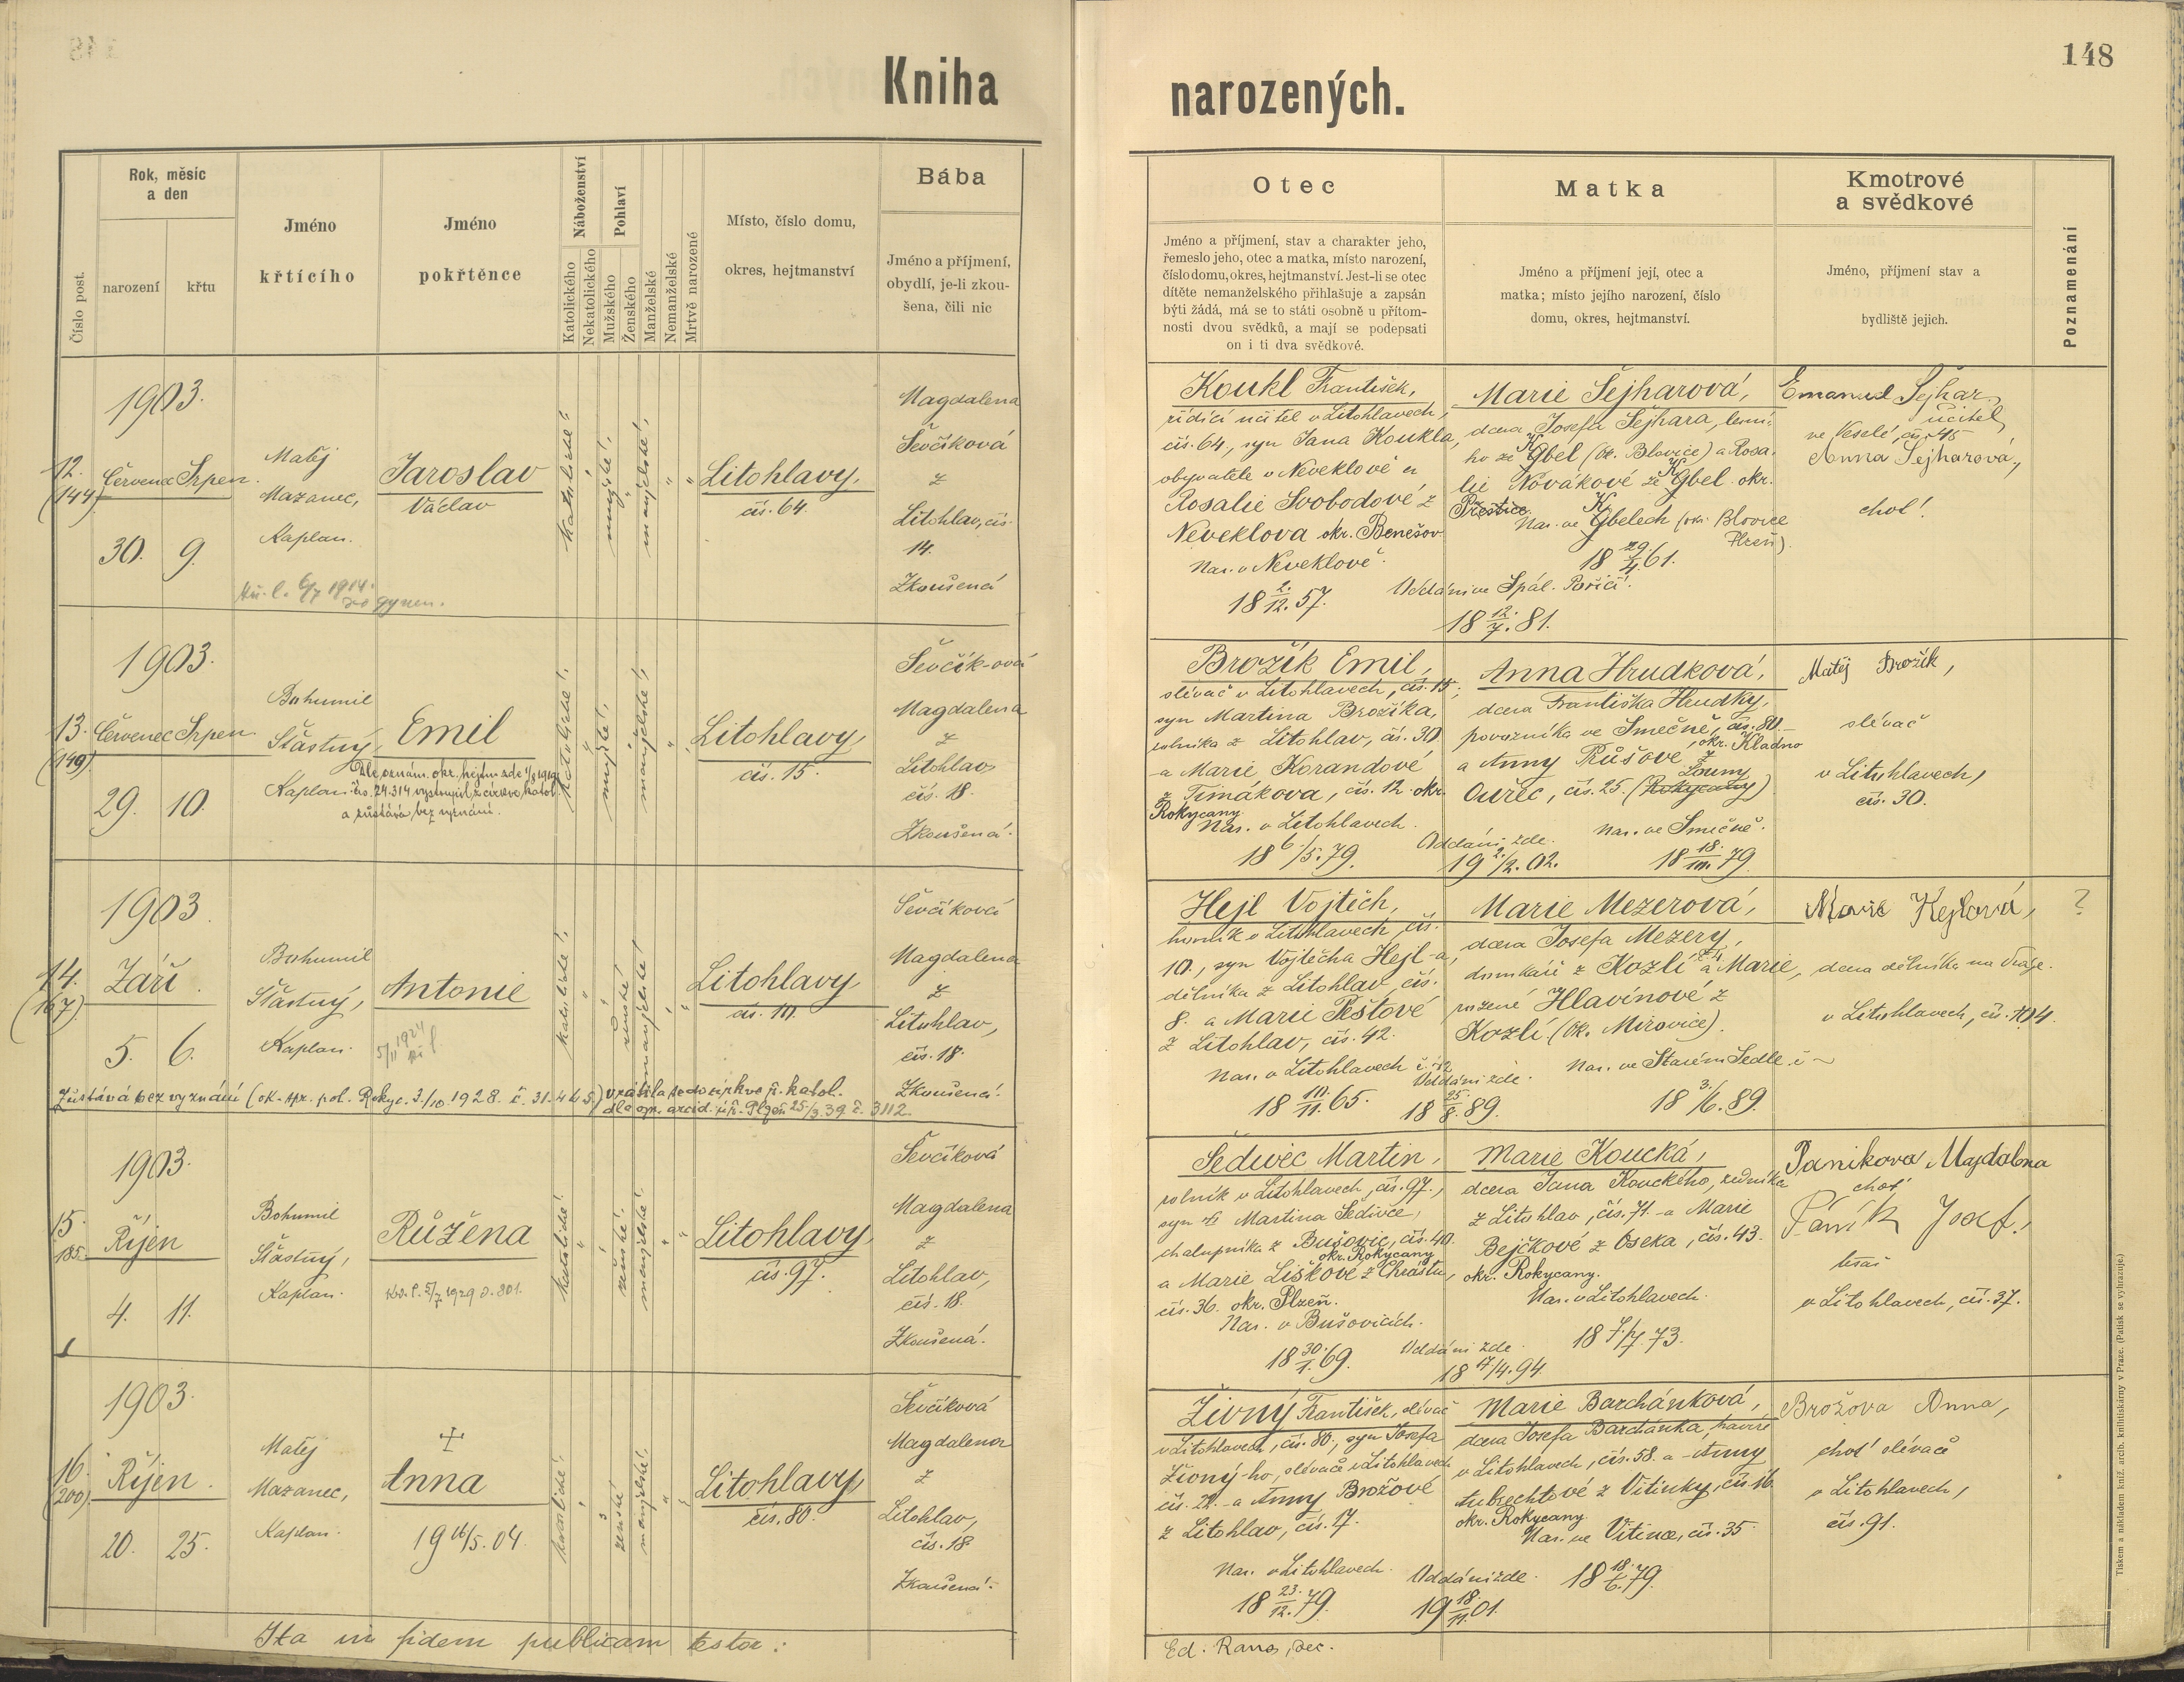 148
Kniha narozených.
Číslo post.
Rok, měsíc
a den
narození
křtu
Jméno
křtícího
Jméno
pokřtěnce
Náboženství
Katolického
Nekatolického
Pohlaví
Mužského
Ženského
Manželské
Nemanželské
Mrtvě narozené
Místo, číslo domu,
okres, hejtmanství
Bába
Jméno a příjmení,
obydlí, je-li zkou-
šena, čili nic
Otec
Jméno a příjmení, stav a charakter jeho,
řemeslo jeho, otec a matka, místo narození,
číslo domu, okres, hejtmanství. Jest-li se otec
dítěte nemanželského přihlašuje a zapsán
býti žádá, má se to státi osobně u přítom-
nosti dvou svědků, a mají se podepsati
on i ti dva svědkové.
Matka
Jméno a příjmení její, otec a
matka; místo jejího narození, číslo
domu, okres, hejtmanství.
Kmotrové
a svědkové
Jméno, příjmení stav a
bydliště jejich.
Poznamenání
1903.
12.
(144)
Červenec Srpen.
30. 9.
Matěj
Mazanec,
Kaplan.
Jaroslav
Václav
katolické!
mužské!
manželské!
Litohlavy,
čís. 64.
Magdalena
Ševčíková
z
Litohlav, čís.
14.
Zkoušená
Koukl František,
řídící učitel v Litohlavech,
čís. 64., syn Jana Koukla,
obyvatele v Neveklově a
Rosalie Svobodové z
Neveklova okr. Benešov
Nar. v Neveklově.
18 2./12. 57.
Oddáni ve Spál. Poříčí.
18 12./7. 81.
Marie Šejharová,
dcera Josefa Šejhara, lesní-
ho ze Gbel (Ok. Blovice) a Rosa-
lie Novákové ze Gbel okr.
Přestice.
Nar. ve Gbelech (okr. Blovice
Plzeň).
18 29./4. 61.
Emanuel Šejhar,
učitel
ve Veselé, čís. 45
Anna Šejharová,
choť.
1903.
13.
(149)
Červenec Srpen
29. 10.
Bohumil
Šťastný,
Kaplan.
Emil
Dle oznám. okr. hejtm. zde 1/8 1919
čís. 24.314 vystoupil z církve katol.
a zůstává bez vyznání.
katolické!
mužské!
manželské!
Litohlavy,
čís. 15.
Ševčík-ová
Magdalena
z
Litohlav
čís. 18.
Zkoušená.
Brožík Emil,
slévač v Litohlavech, čís. 15;
syn Martina Brožíka,
rolníka z Litohlav, čís. 30.
a Marie Korandové
z Timákova, čís. 12. okr.
Rokycany
Nar. v Litohlavech.
18 6./5. 79.
Oddáni zde.
19 2./2. 02.
Anna Hrudková,
dcera Františka Hrudky,
povozníka ve Smečně, čís. 80.
okr. Kladno
a Anny Růšové z
Louny
Ouřec, čís. 25. (Rokycany)
Nar. ve Smečně.
18 18./III. 79
Matěj Brožík,
slévač
v Litohlavech,
čís. 30.
1903.
14.
(167)
Září.
5. 6.
Bohumil
Šťastný,
Kaplan.
Antonie
katolické!
ženské!
manželské!
Litohlavy
čís. 10.
Ševčíková
Magdalena
z
Litohlav,
čís. 18.
Zkoušená.
Zůstává bez vyznání (ok. spr. pol. Rokyc. 3./10. 1928. č. 31.445.) vrátila se do církve ř. katol.
Hejl Vojtěch,
horník v Litohlavech, čís.
10., syn Vojtěcha Hejl-a,
dělníka z Litohlav, čís.
8. a Marie Peštové
z Litohlav, čís. 42.
Nar. v Litohlavech č. 42
18 10./11. 65.
Oddáni zde.
18 25./8. 89.
Marie Mezerová,
dcera Josefa Mezery,
domkáře z Kozlí a Marie,
rozené Hlavínové z
Kozlí (Ok. Mirovice).
Nar. ve Starém Sedle.
18 3./6. 89.
Marie Hejlová,
dcera dělníka na dráze.
v Litohlavech, čís. 104.
?
1903.
15.
185.
Říjen
4. 11.
Bohumil
Šťastný,
Kaplan.
Růžena
katolické!
ženské!
manželské!
Litohlavy,
čís. 97.
Ševčíková
Magdalena
z
Litohlav,
čís. 18.
Zkoušená.
Šedivec Martin,
rolník v Litohlavech, čís. 97.,
syn Martina Šedivce,
chalupníka z Bušovic, čís. 40.
okr. Rokycany
a Marie Liškové z Chrástu,
čís. 36. okr. Plzeň.
Nar. v Bušovicích.
18 30./1. 69.
Oddáni zde.
18 17/4. 94.
Marie Koucká,
dcera Jana Kouckého, zedníka
z Litohlav, čís. 71. a Marie
Bejčkové z Oseka, čís. 43.
okr. Rokycany.
Nar. v Litohlavech.
18 5./7. 73.
Panikova Majdalena
choť
Paník Josef,
tesař
v Litohlavech, čís. 37.
1903.
16.
(200)
Říjen.
20. 25.
Matěj
Mazanec,
Kaplan.
Anna
19 16/5. 04.
katolické!
ženské
manželské!
Litohlavy,
čís. 80.
Ševčíková
Magdalena
z
Litohlav,
čís. 18
Zkoušená.
Živný František, slévač
v Litohlavech, čís. 80., syn Josefa
Živný-ho, slévače v Litohlavech
čís. 22. a Anny Brožové
z Litohlav, čís. 17.
Nar. v Litohlavech.
18 23./12. 79.
Oddáni zde.
19 18./11. 01.
Marie Barchánková,
dcera Josefa Barchánka, havíře
v Litohlavech, čís. 58. a Anny
Aubrechtové z Vitinky, čís. 16.
okr. Rokycany
Nar. ve Vitince, čís. 35.
18 18./6. 79.
Brožova Anna,
choť slévače
v Litohlavech,
čís. 91.
Ita in fidem publicam testor:
Tiskem a nákladem kníž. arcib. knihtiskárny v Praze. (Patisk se vyhrazuje)